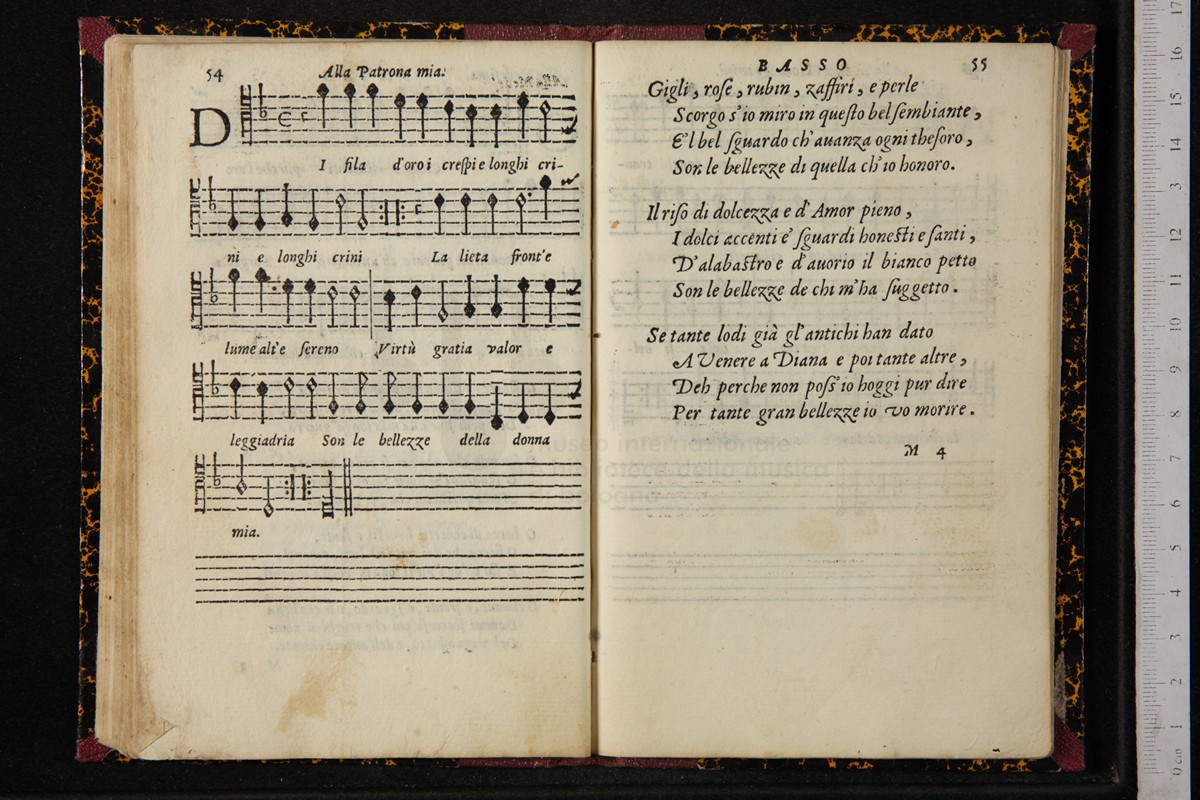 54
Alla Patrona mia.
DI fila d'oro i crespi e longhi cri-
ni e longhi crini La lieta front'e
lume alt'e sereno Virtù gratia valor e
leggiadria Son le bellezze della donna
mia.
BASSO 55
Gigli, rose, rubin, zaffiri, e perle
Scorgo s'io miro in questo bel sembiante,
E'l bel sguardo ch'auanza ogni thesoro,
Son le bellezze di quella ch'io honoro.
Il riso di dolcezza e d'Amor pieno,
I dolci accenti e' sguardi honesti e santi,
D'alabastro e d'auorio il bianco petto
Son le bellezze de chi m'ha suggetto.
Se tante lodi già gl'antichi han dato
A Venere a Diana e poi tante altre,
Deh perche non poss'io hoggi pur dire
Per tante gran bellezze io vo morire.
M 4
museo internazionale
e biblioteca della musica
di bologna
0 cm 1 2 3 4 5 6 7 8 9 10 11 12 13 14 15 16 17